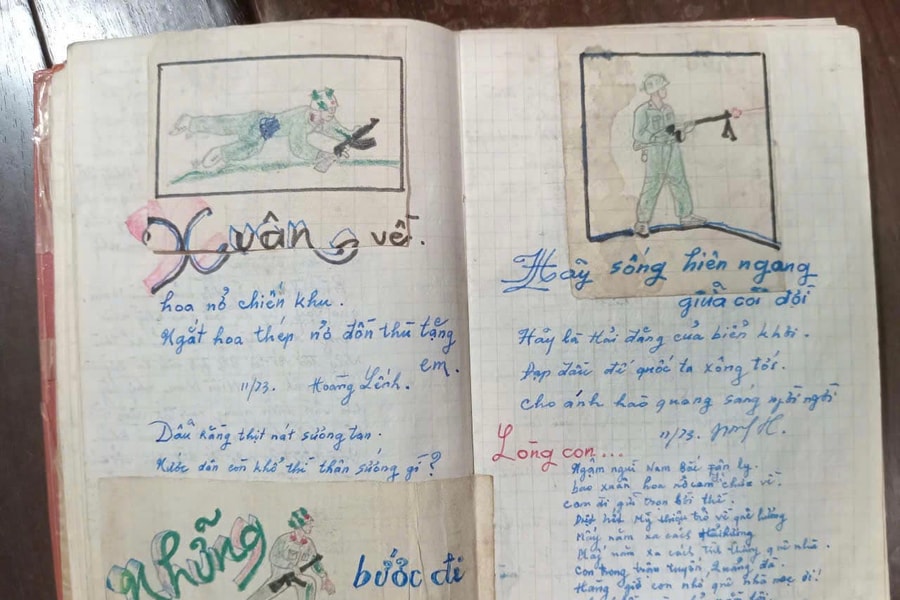 Xuân về.
hoa nở chiến khu.
Ngắt hoa thép nở đồn thù tặng
em.
11/73. Hoàng Lênh.
Dẫu rằng thịt nát sương tan.
Nước dân còn khổ thì thân sướng gì?
Những bước đi
Hãy sống hiên ngang
giữa cõi đời
Hãy là Hải đăng của biển khơi.
Đạp đầu đế quốc ta xông tới.
Cho ánh hào quang sáng ngời ngời
11/73.
Lòng con...
Ngậm ngùi Nam Bắc phân ly.
bao xuân hoa nở con chưa về.
Con đi gửi trọn lời thề.
Diệt hết Mỹ Thiệu trở về quê hương
Mấy năm xa cách
Mấy năm xa cách quê nhà.
Con trong trận tuyến Quảng đà.
Hằng giờ con nhớ quê nhà mẹ ơi!